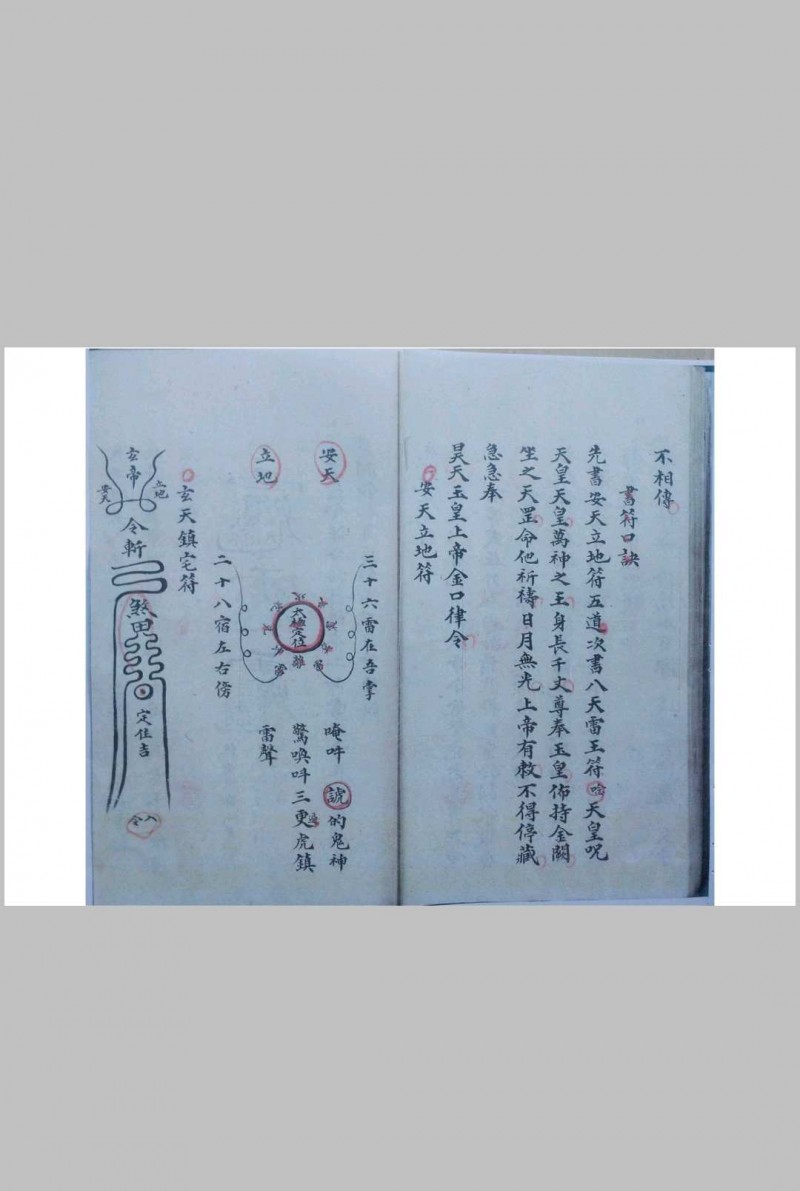 不相傳
書符口訣
先書安天立地符五道次書八天雷王符唸天皇咒
天皇天皇萬神之王身長千丈尊奉玉皇佈持金闕
坐之天罡命他祈禱日月無光上帝有敕不得停藏
急急奉
昊天玉皇上帝金口律令
安天立地符
安天
立地
三十六雷在吾掌
太極定位
離
二十八宿左右傍
唵吽
諕的鬼神
驚喚吽三更虎鎮
雷聲
玄天鎮宅符
玄帝
立地
安天
令斬
煞
定住吉
令